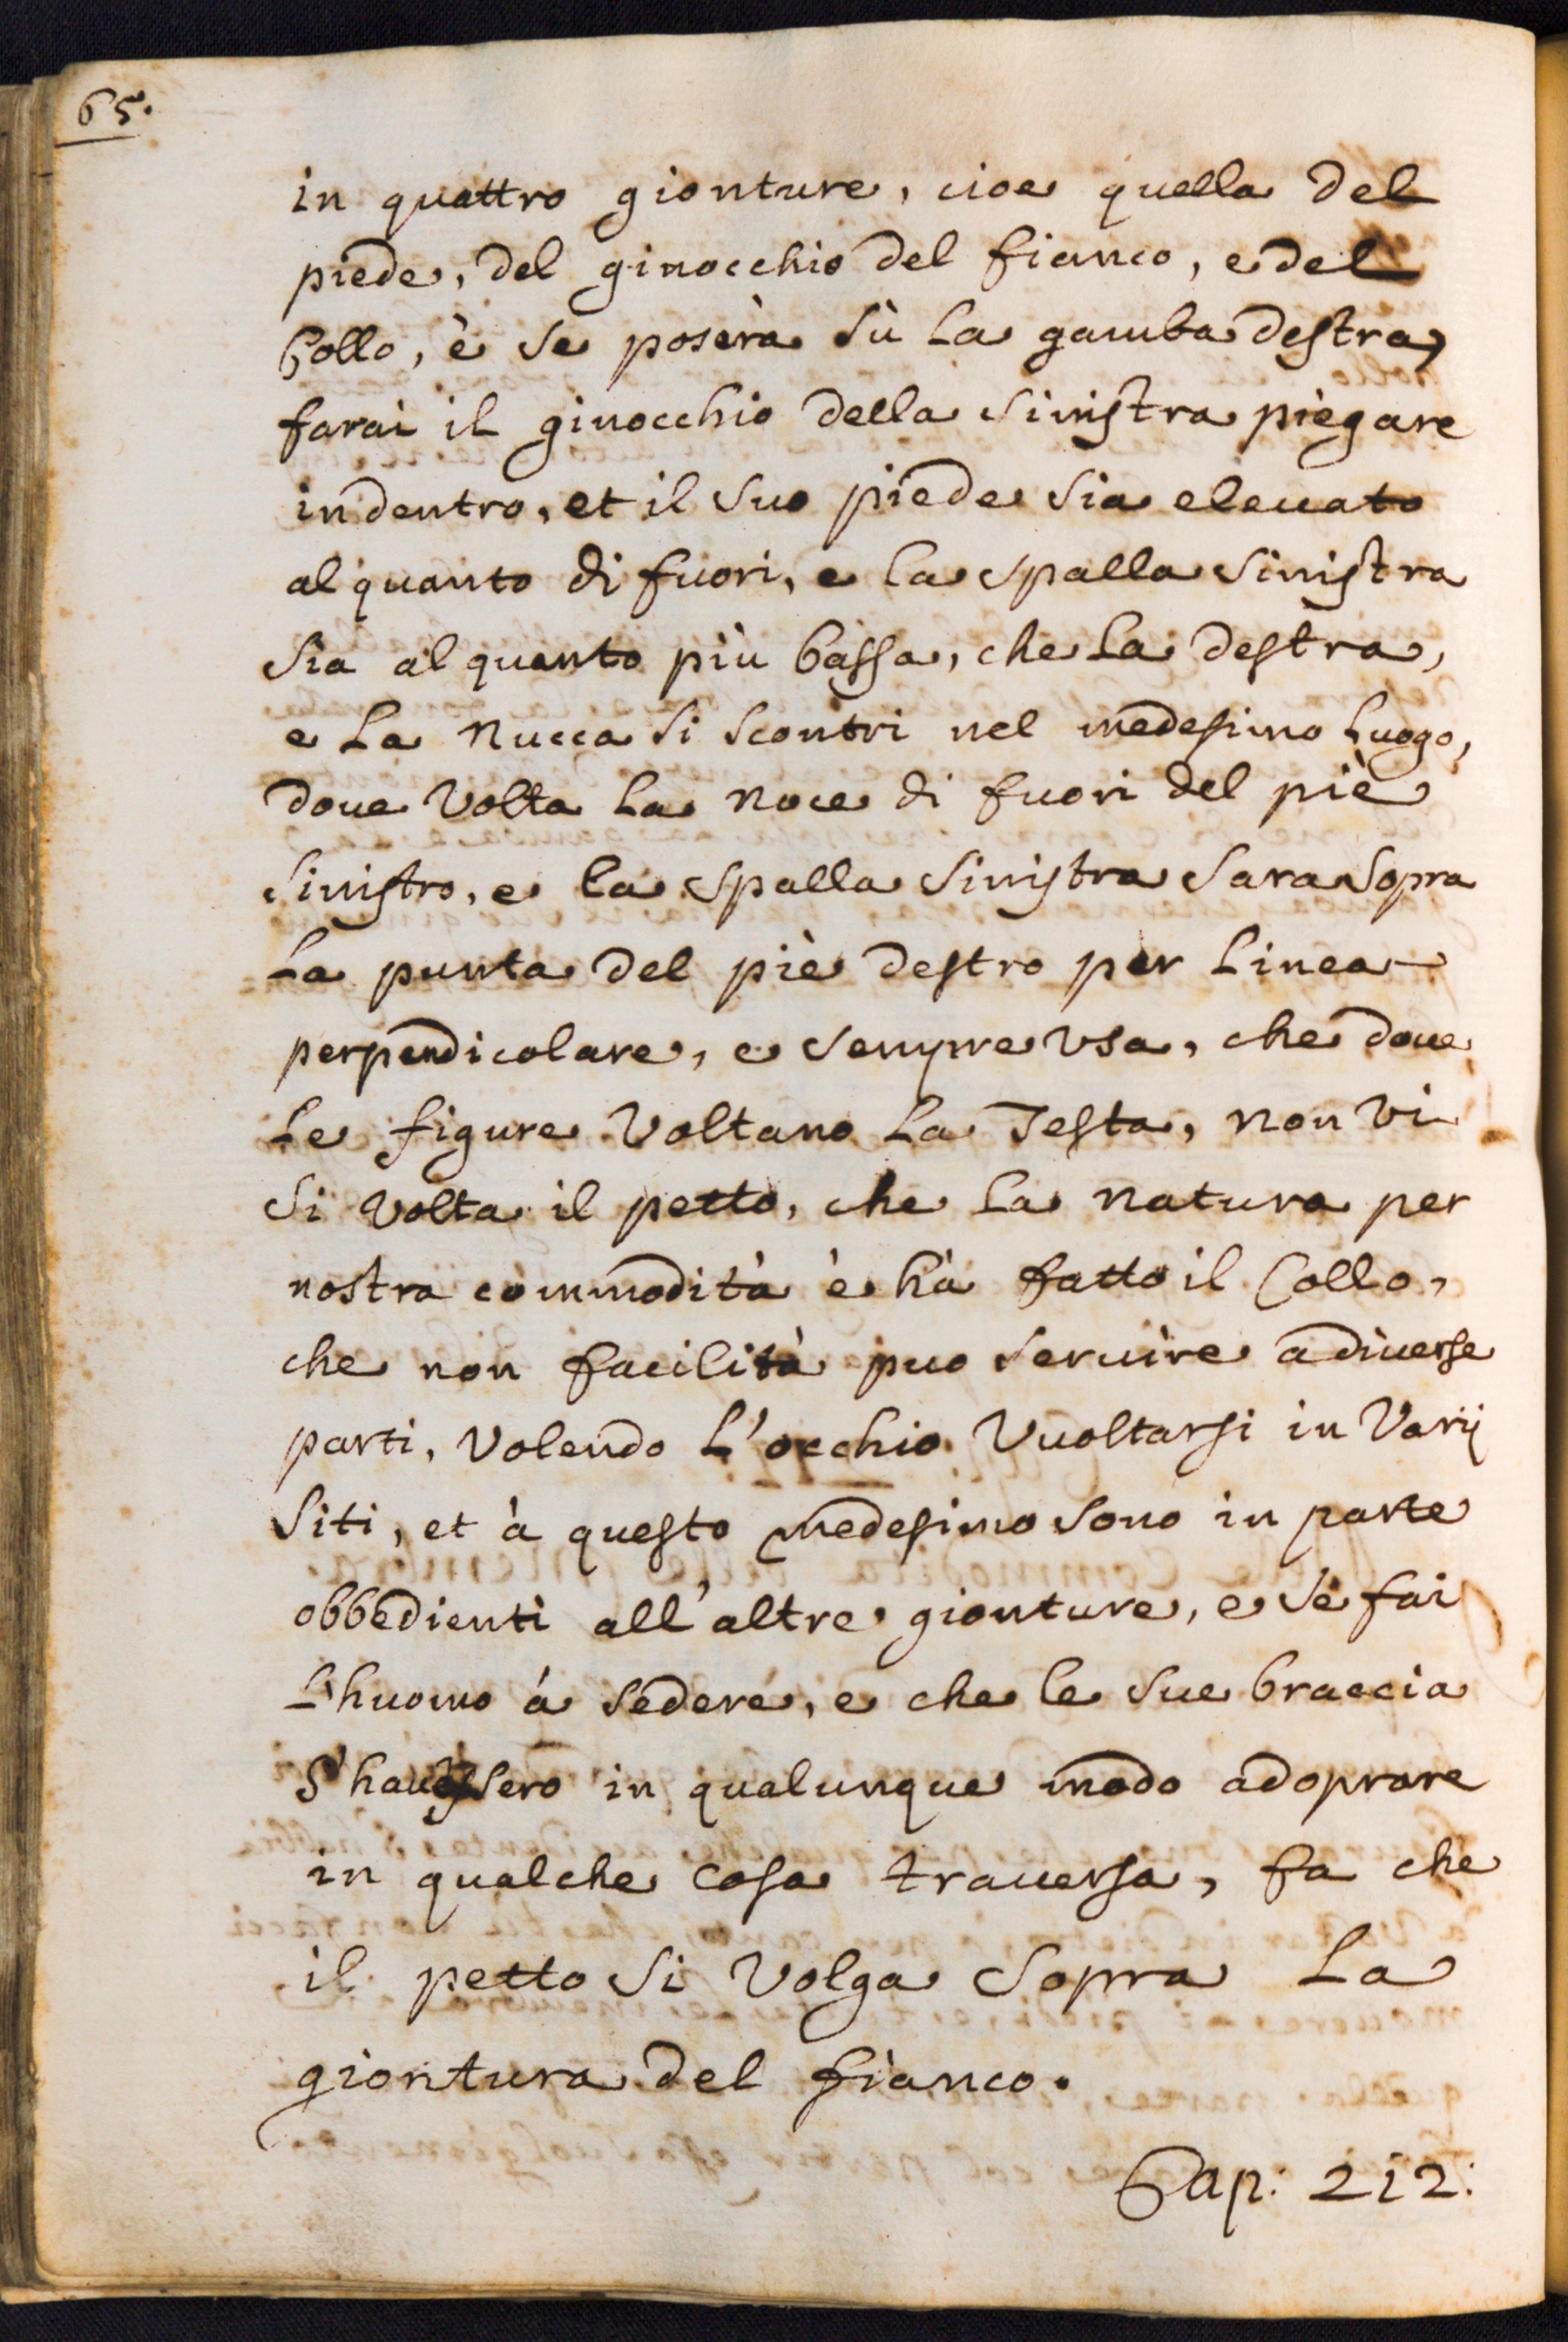 65.
in quattro gionture, cioe quella del
piede, del ginocchio del fianco, e del
Collo, è se poserà sù la gamba destra,
farai il ginocchio della sinistra piegare
indentro, et il suo piede sia eleuato
alquanto di fuori, e la spalla sinistra
sia alquanto più bassa, che la destra,
e la nucca si scontri nel medesimo luogo,
doue volta la noce di fuori del piè
sinistro, e la spalla sinistra sara sopra
la punta del piè destro per linea
perpendicolare, e sempre vsa, che doue
le figure voltano la Testa, non vi
si volta il petto, che la natura per
nostra commodità è hà fatto il Collo,
che non facilità puo seruire a diuerse
parti, volendo l'occhio vuoltarsi in varij
siti, et à questo medesimo sono in parte
obbedienti all'altre gionture, e se fai
l'huomo à sedere, e che le sue braccia
s'hauessero in qualunque modo adoprare
in qualche cosa trauersa, fa che
il petto si volga sopra la
giontura del fianco.
Cap: 212: